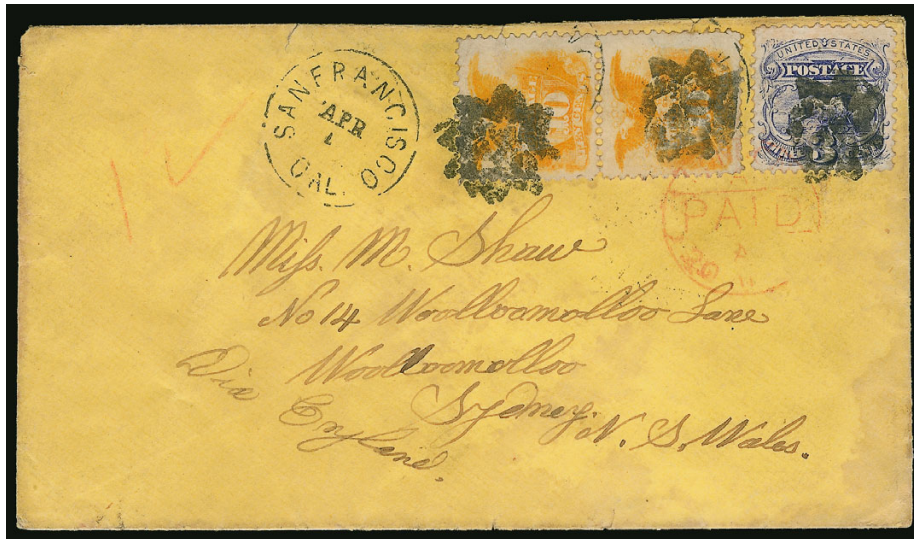 SAN FRANCISCO
APR
CAL.
UNITED STATES
POSTAGE
PAID
Miss. M. Shaw
No 14 Woolloomolloo Lane
Woolloomolloo
Sydney.
N. S. Wales.
Via
England.